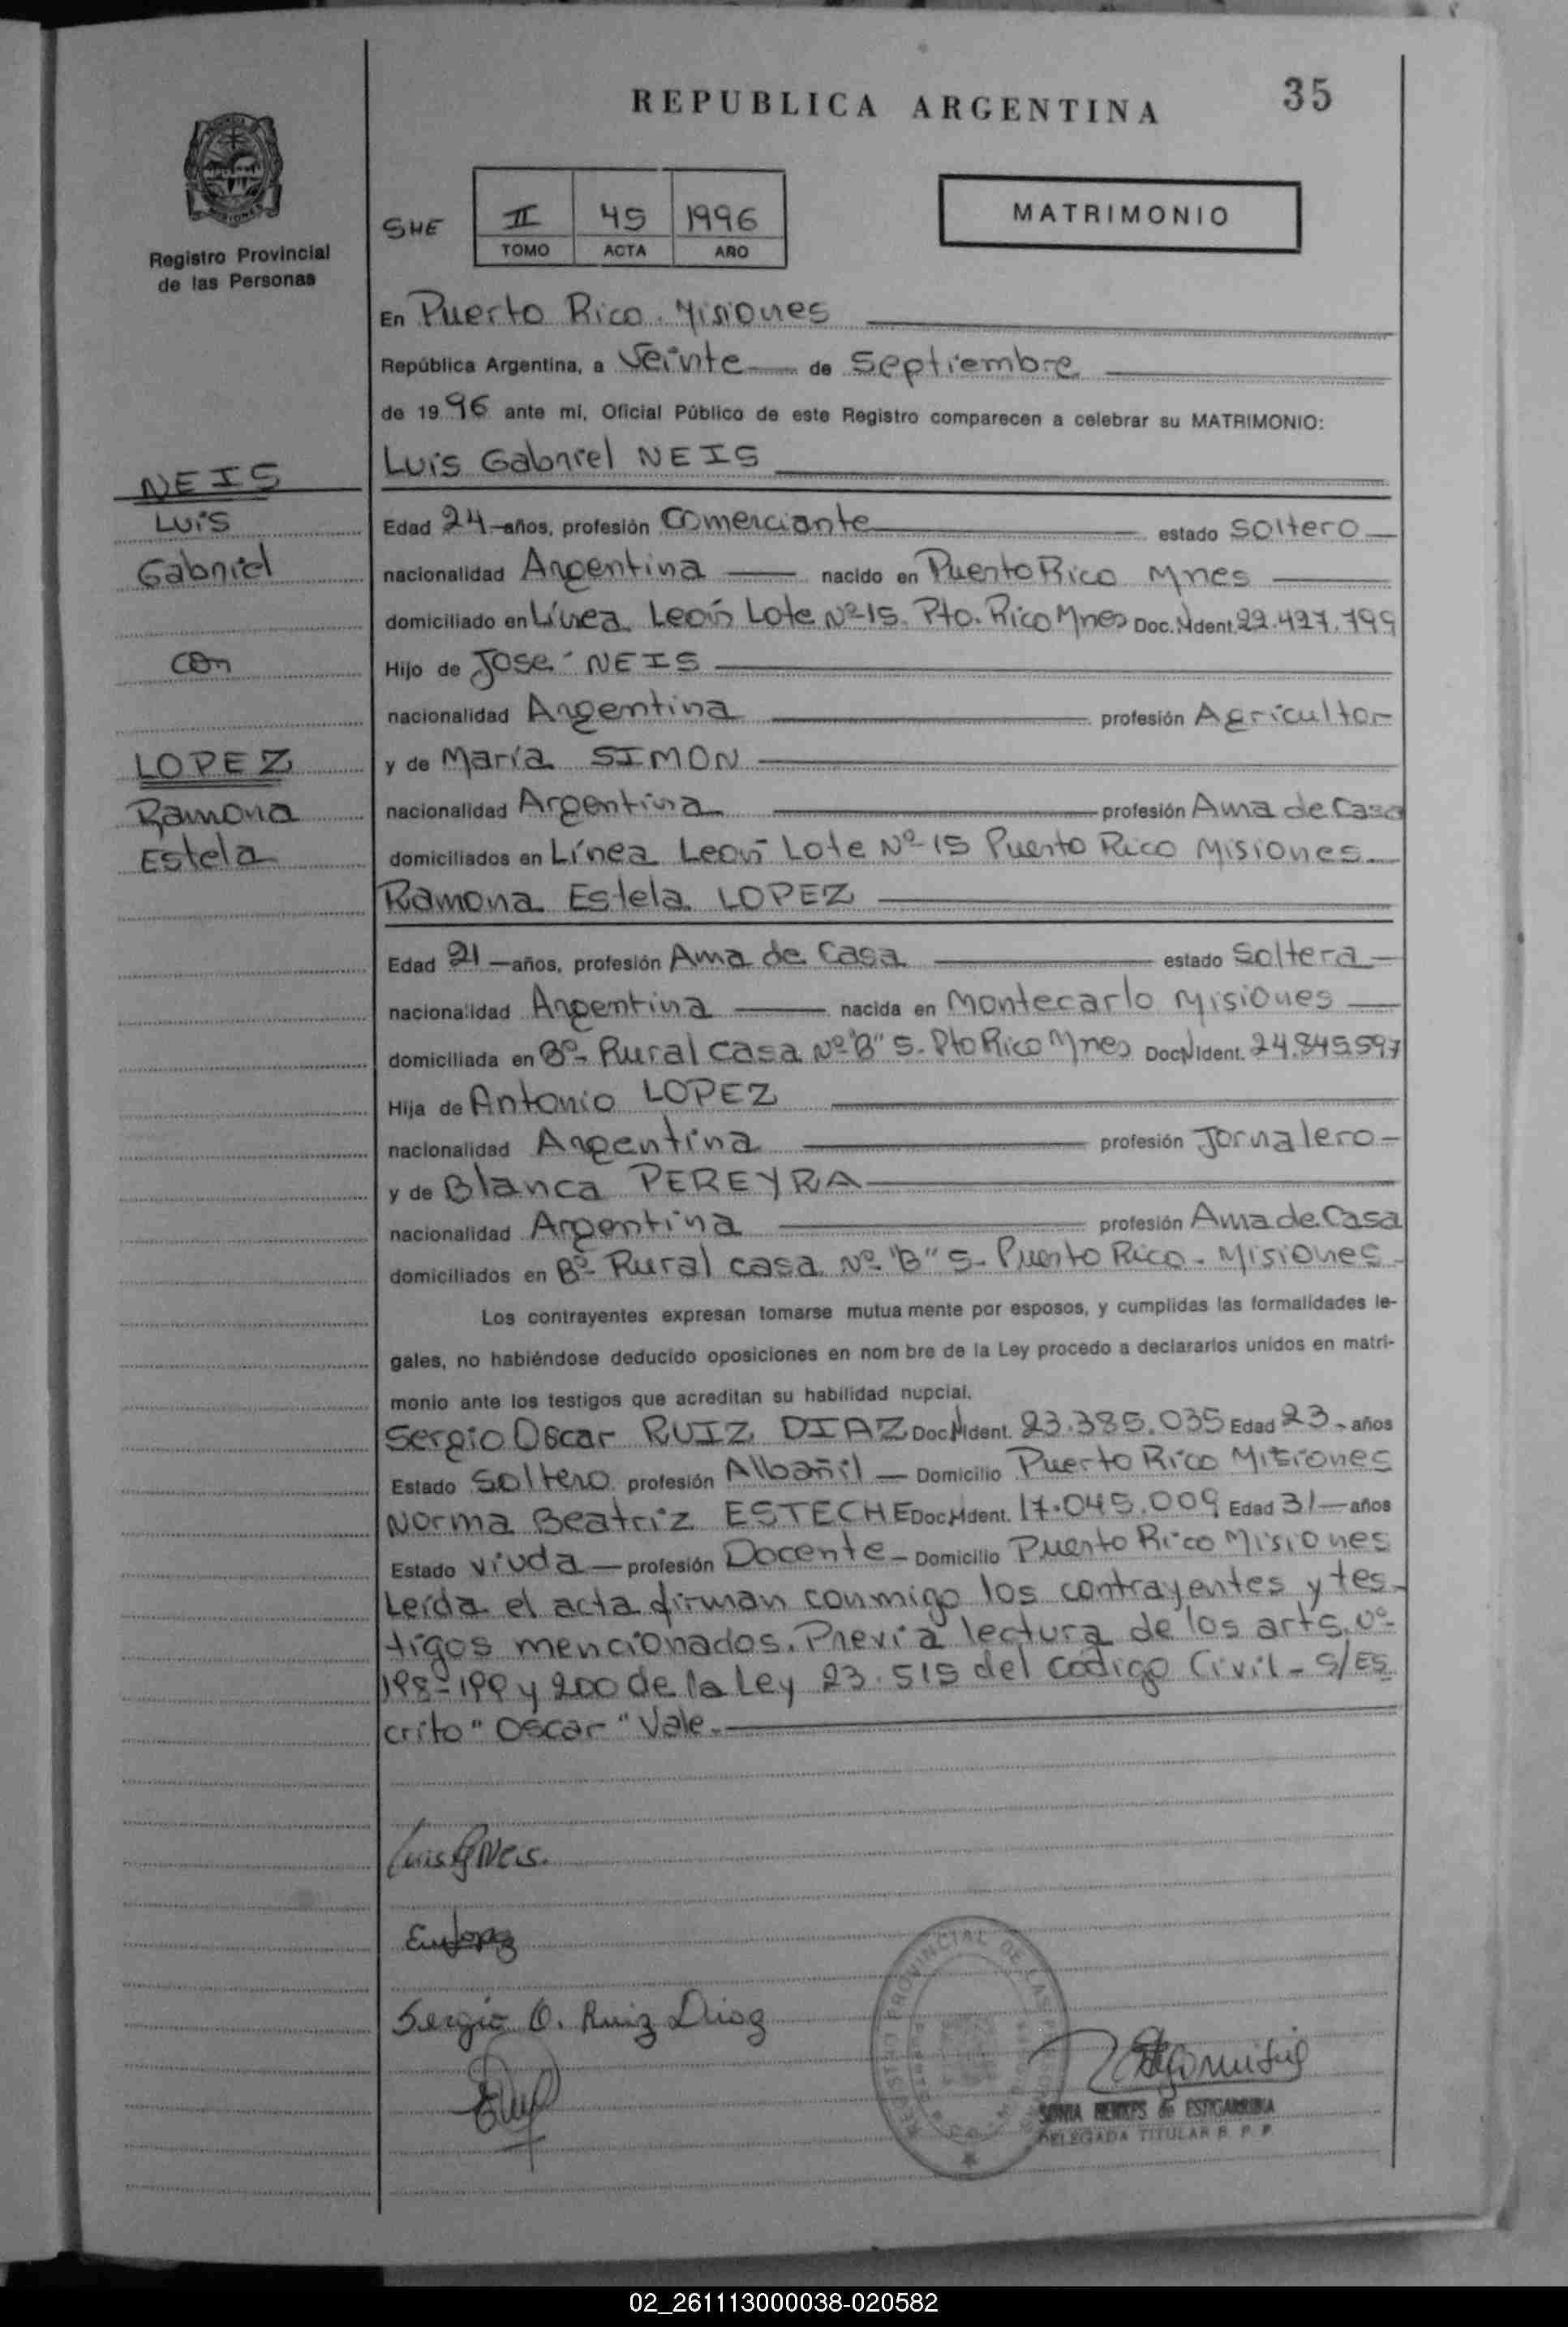 REPUBLICA ARGENTINA
35
Registro Provincial
de las Personas
SHE
II 45 1996
TOMO ACTA AÑO
MATRIMONIO
En Puerto Rico. Misiones
República Argentina, a Veinte de Septiembre
de 1996 ante mi, Oficial Público de este Registro comparecen a celebrar su MATRIMONIO:
Luis Gabriel NEIS
NEIS
Luis
Gabriel
con
LOPEZ
Ramona
Estela
Edad 24 años, profesión Comerciante estado Soltero
nacionalidad Argentina nacido en Puerto Rico Mnes
domiciliado en Línea León Lote Nº 15. Pto. Rico Mnes Doc. N Ident. 22.427.799
Hijo de José NEIS
nacionalidad Argentina profesión Agricultor
y de María SIMON
nacionalidad Argentina profesión Ama de Casa
domiciliados en Línea León Lote Nº 15 Puerto Rico Misiones
Ramona Estela LOPEZ
Edad 21 años, profesión Ama de Casa estado Soltera
nacionalidad Argentina nacida en Montecarlo Misiones
domiciliada en Bº Rural Casa Nº "B" 5. Pto Rico Mnes Doc N Ident. 24.845.597
Hija de Antonio LOPEZ
nacionalidad Argentina profesión Jornalero
y de Blanca PEREYRA
nacionalidad Argentina profesión Ama de Casa
domiciliados en Bº Rural casa Nº "B" 5- Puerto Rico - Misiones
Los contrayentes expresan tomarse mutua mente por esposos, y cumplidas las formalidades le-
gales, no habiéndose deducido oposiciones en nom bre de la Ley procedo a declararlos unidos en matri-
monio ante los testigos que acreditan su habilidad nupcial.
Sergio Oscar RUIZ DIAZ Doc N Ident. 23.385.035 Edad 23 años
Estado Soltero profesión Albañil Domicilio Puerto Rico Misiones
Norma Beatriz ESTECHE Doc N Ident. 17.045.009 Edad 31 años
Estado viuda profesión Docente Domicilio Puerto Rico Misiones
Leída el acta firman conmigo los contrayentes y tes-
tigos mencionados. Previa lectura de los arts. nº
198-199 y 200 de la Ley 23.515 del Código Civil - S/Es
crito "Oscar" Vale.
Luis G Neis.
Sergio O. Ruiz Diaz
REGISTRO PROVINCIAL DE LAS PERSONAS
SONIA de ESTIGARRIBIA
DELEGADA TITULAR R. P. P.
02_261113000038-020582